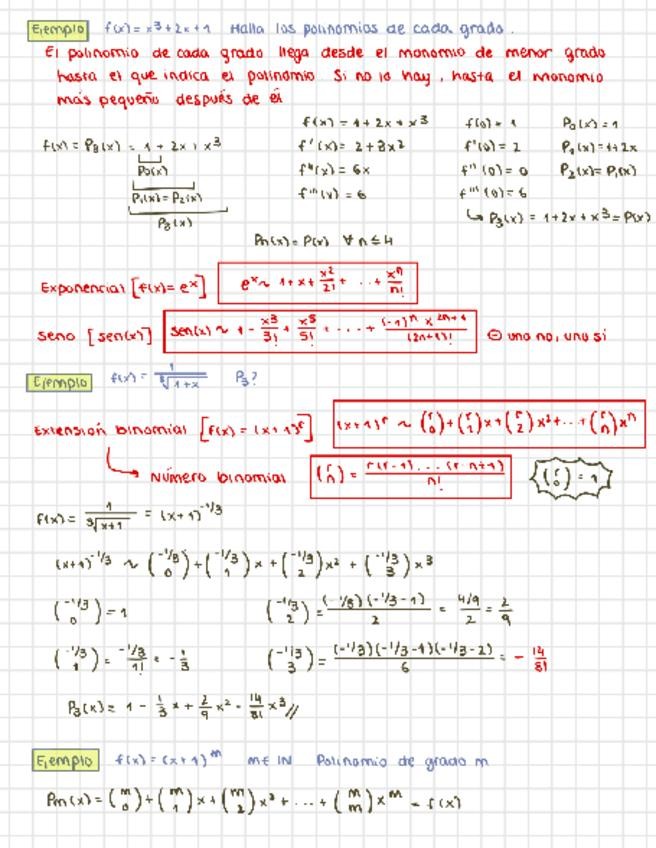 Ejemplo f(x) = x³ + 2x + 1 Halla los polinomios de cada grado.
El polinomio de cada grado llega desde el monomio de menor grado
hasta el que indica el polinomio Si no lo hay, hasta el monomio
más pequeño después de él
f(x) = P₃(x) = 1 + 2x + x³
P₀(x)
P₁(x) = P₂(x)
P₃(x)
f(x) = 1 + 2x + x³ f(0) = 1 P₀(x) = 1
f'(x) = 2 + 3x² f'(0) = 2 P₁(x) = 1 + 2x
f''(x) = 6x f''(0) = 0 P₂(x) = P₁(x)
f'''(x) = 6 f'''(0) = 6
↳ P₃(x) = 1 + 2x + x³ = P(x)
Pn(x) = P(x) ∀ n ≤ 4
Exponencial [f(x) = eˣ] eˣ ~ 1 + x + x²/2! + ... + xⁿ/n!
Seno [sen(x)] sen(x) ~ 1 - x³/3! + x⁵/5! + ... + (-1)ⁿ x²ⁿ⁺¹/(2n+1)! ⊖ uno no, uno sí
Ejemplo f(x) = 1/∛(1+x) P₃?
Extensión binomial [f(x) = (x+1)^r] (x+1)^r ~ (r 0) + (r 1)x + (r 2)x² + ... + (r n)xⁿ
Número binomial (r n) = r(r-1)...(r-n+1)/n! (r 0) = 1
f(x) = 1/∛(x+1) = (x+1)^-1/3
(x+1)^-1/3 ~ (-1/3 0) + (-1/3 1)x + (-1/3 2)x² + (-1/3 3)x³
(-1/3 0) = 1 (-1/3 2) = (-1/3)(-1/3-1)/2 = 4/9/2 = 2/9
(-1/3 1) = -1/3/1! = -1/3 (-1/3 3) = (-1/3)(-1/3-1)(-1/3-2)/6 = -14/81
P₃(x) = 1 - 1/3 x + 2/9 x² - 14/81 x³ //
Ejemplo f(x) = (x+1)^m m ∈ IN Polinomio de grado m
Pm(x) = (m 0) + (m 1)x + (m 2)x² + ... + (m m)x^m = f(x)